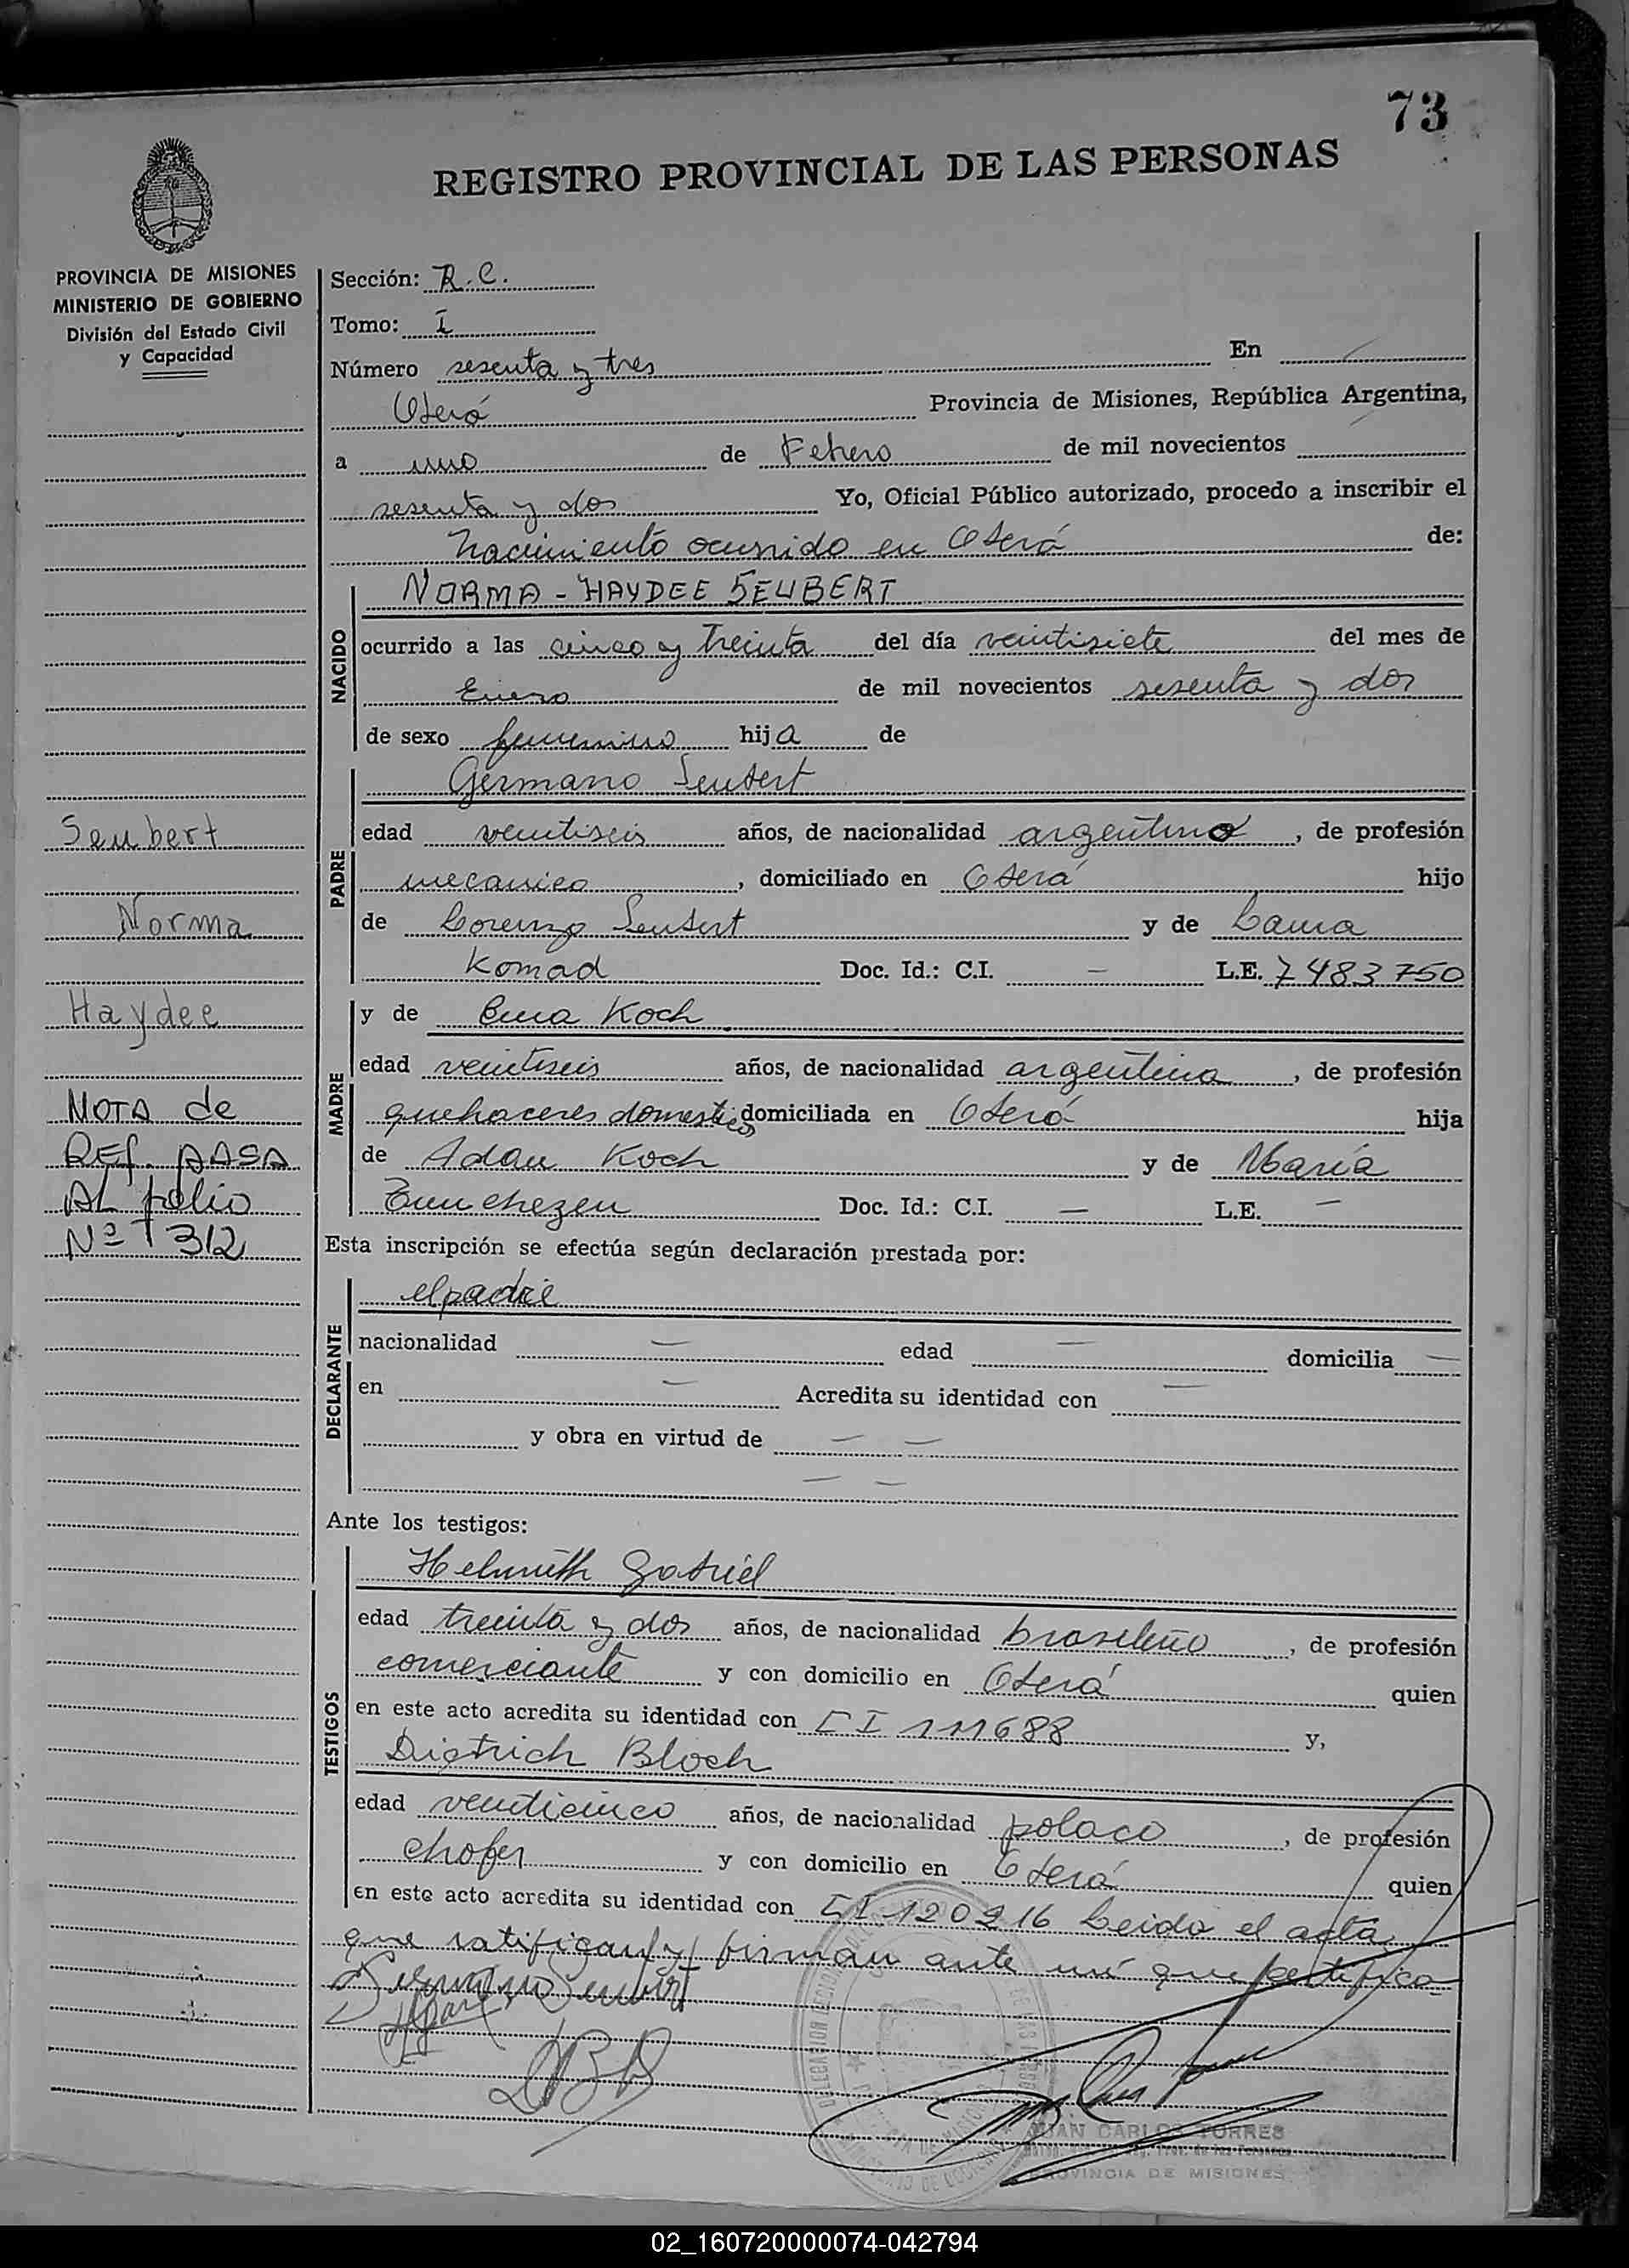 73
REGISTRO PROVINCIAL DE LAS PERSONAS
PROVINCIA DE MISIONES
MINISTERIO DE GOBIERNO
División del Estado Civil
y Capacidad
Seubert
Norma
Haydee
NOTA de
REF. PASA
AL folio
Nº 312
Sección: R.C.
Tomo: I
Número sesenta y tres En
Oberá Provincia de Misiones, República Argentina,
a uno de Febrero de mil novecientos
sesenta y dos Yo, Oficial Público autorizado, procedo a inscribir el
nacimiento ocurrido en Oberá de:
NACIDO
NORMA - HAYDEE SEUBERT
ocurrido a las cinco y treinta del día veintisiete del mes de
Enero de mil novecientos sesenta y dos
de sexo femenino hija de
PADRE
Germano Seubert
edad veintiseis años, de nacionalidad argentino, de profesión
mecanico, domiciliado en Oberá hijo
de Lorenzo Seubert y de
Doc. Id.: C.I. — L.E. 7483750
MADRE
y de Ema Koch
edad veintiseis años, de nacionalidad argentina, de profesión
quehaceres domesticos domiciliada en Oberá hija
de Adan Koch y de Maria
Doc. Id.: C.I. — L.E. —
Esta inscripción se efectúa según declaración prestada por:
DECLARANTE
el padre
nacionalidad — edad — domicilia —
en — Acredita su identidad con —
y obra en virtud de — —
— —
Ante los testigos:
TESTIGOS
Helmuth Gabriel
edad treinta y dos años, de nacionalidad brasileño, de profesión
comerciante y con domicilio en Oberá quien
en este acto acredita su identidad con CI 111688 y,
Dietrich Bloch
edad venticinco años, de nacionalidad polaco, de profesión
chofer y con domicilio en Oberá quien
en este acto acredita su identidad con CI 120216 Leida el acta,
que ratifican y firman ante mí que certifico
Germano Seubert
JUAN CARLOS TORRES
PROVINCIA DE MISIONES
02_160720000074-042794